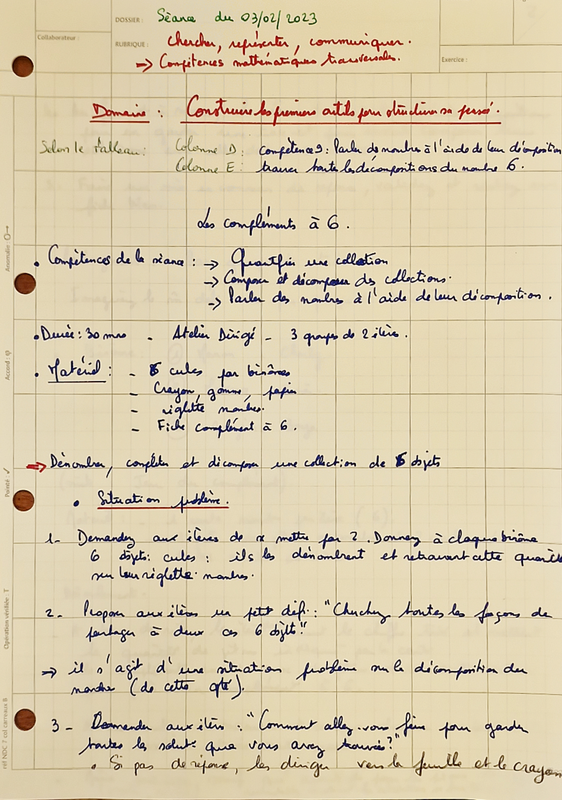 DOSSIER : Séance du 03/02/2023
Collaborateur :
RUBRIQUE : Chercher, représenter, communiquer.
Exercice :
→ Compétences mathématiques transversales.
Domaine : Construire les premiers outils pour structurer sa pensée.
Selon le tableau : Colonne D : compétences : Parler de nombre à l'aide de leur décomposition
Colonne E : trouver toutes les décompositions du nombre 6.
Les compléments à 6.
• Compétences de la séance : → Quantifier une collection
→ Composer et décomposer des collections.
→ Parler des nombres à l'aide de leur décomposition.
• Durée : 30 mns - Atelier Dirigé - 3 groupes de 2 élèves.
• Matériel : - 6 cubes par binômes
- Crayon, gomme, papier
- réglette nombres.
- Fiche complément à 6.
⇒ Dénombrer, compléter et décomposer une collection de 6 objets
• Situation problème.
1- Demandez aux élèves de se mettre par 2. Donnez à chaque binôme
6 objets : cubes : ils les dénombrent et retrouvent cette quantité
sur leur réglette nombres.
2- Proposer aux élèves un petit défi : "Cherchez toutes les façons de
partager à deux ces 6 objets !"
→ il s'agit d'une situation problème sur la décomposition du
nombre (de cette qté).
3 - Demander aux élèves : "Comment allez-vous faire pour garder
toutes les solut° que vous avez trouvées ?"
• Si pas de réponse, les diriger vers la feuille et le crayon
Anomalie :
Accord :
Pointé : ✓
Opération vérifiée : T
réf NDC 7 cut carreaux 8